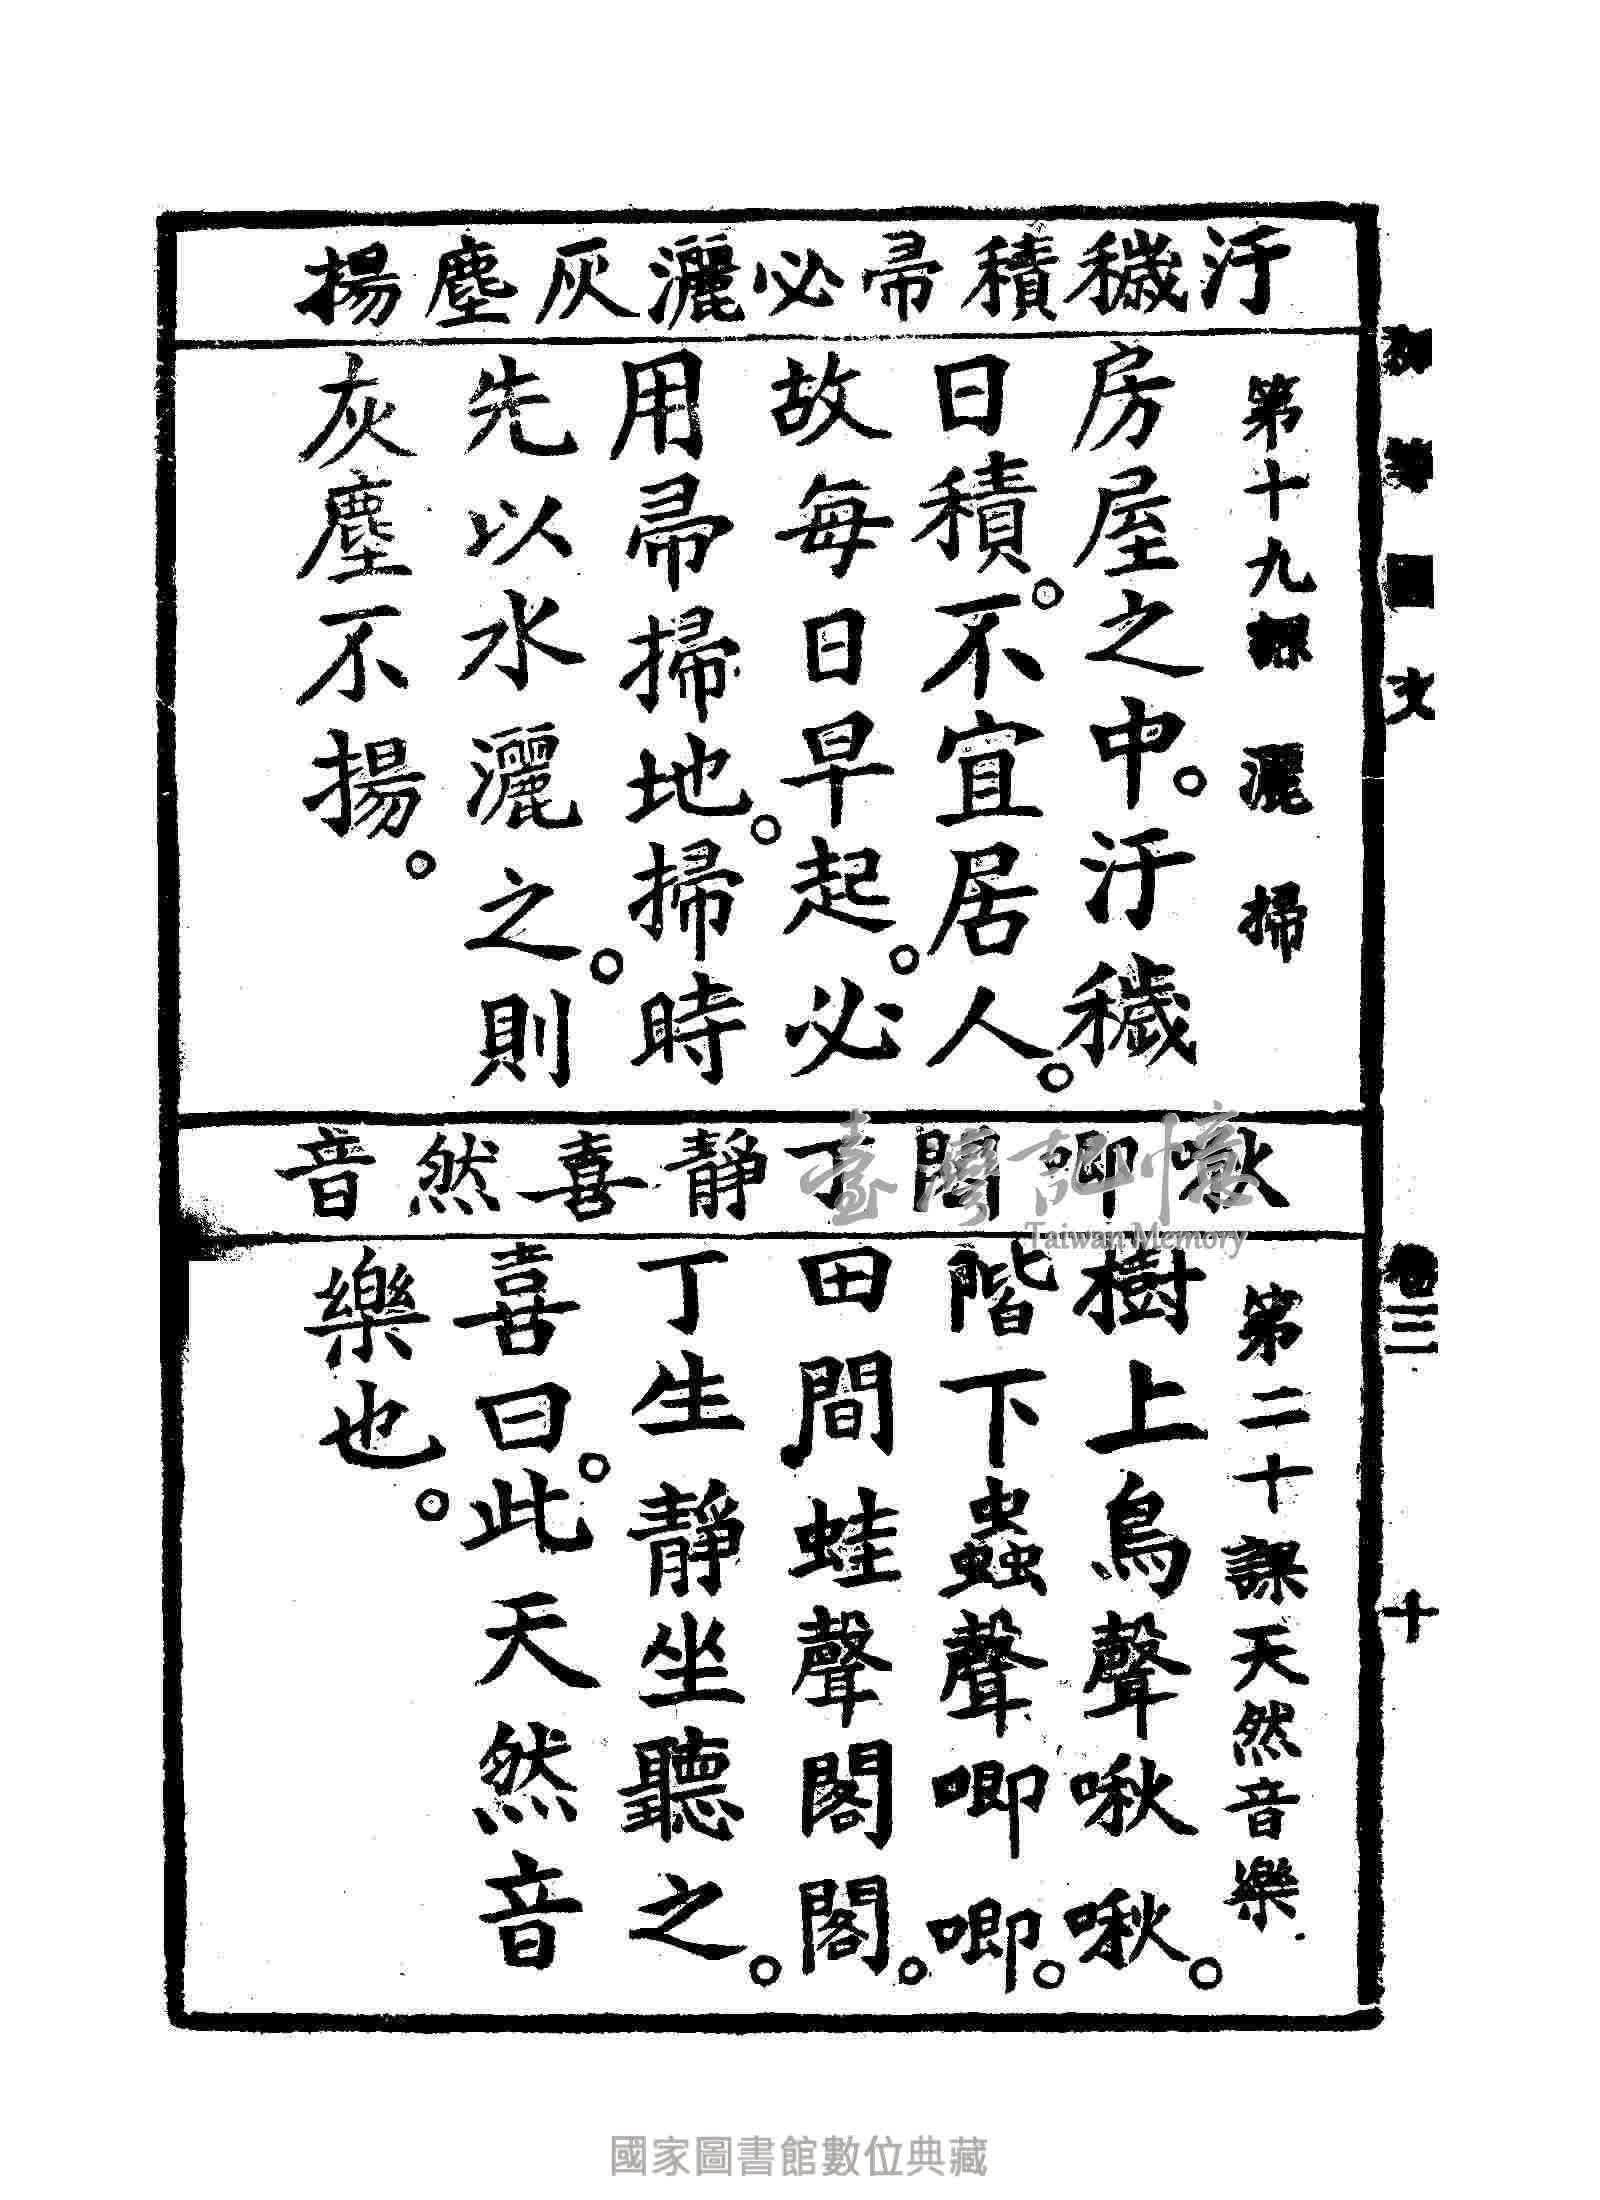 汙穢積帚必灑灰塵揚
第十九課 灑 掃
房屋之中。汙穢
日積。不宜居人。
故每日早起。必
用帚掃地。掃時
先以水灑之。則
灰塵不揚。
啾唧閣丁靜喜然音
第二十課 天然音樂
樹上鳥聲啾啾。
階下蟲聲唧唧。
田間蛙聲閣閣。
丁生靜坐聽之。
喜曰。此天然音
樂也。
卷三
十
臺灣記憶
Taiwan Memory
國家圖書館數位典藏